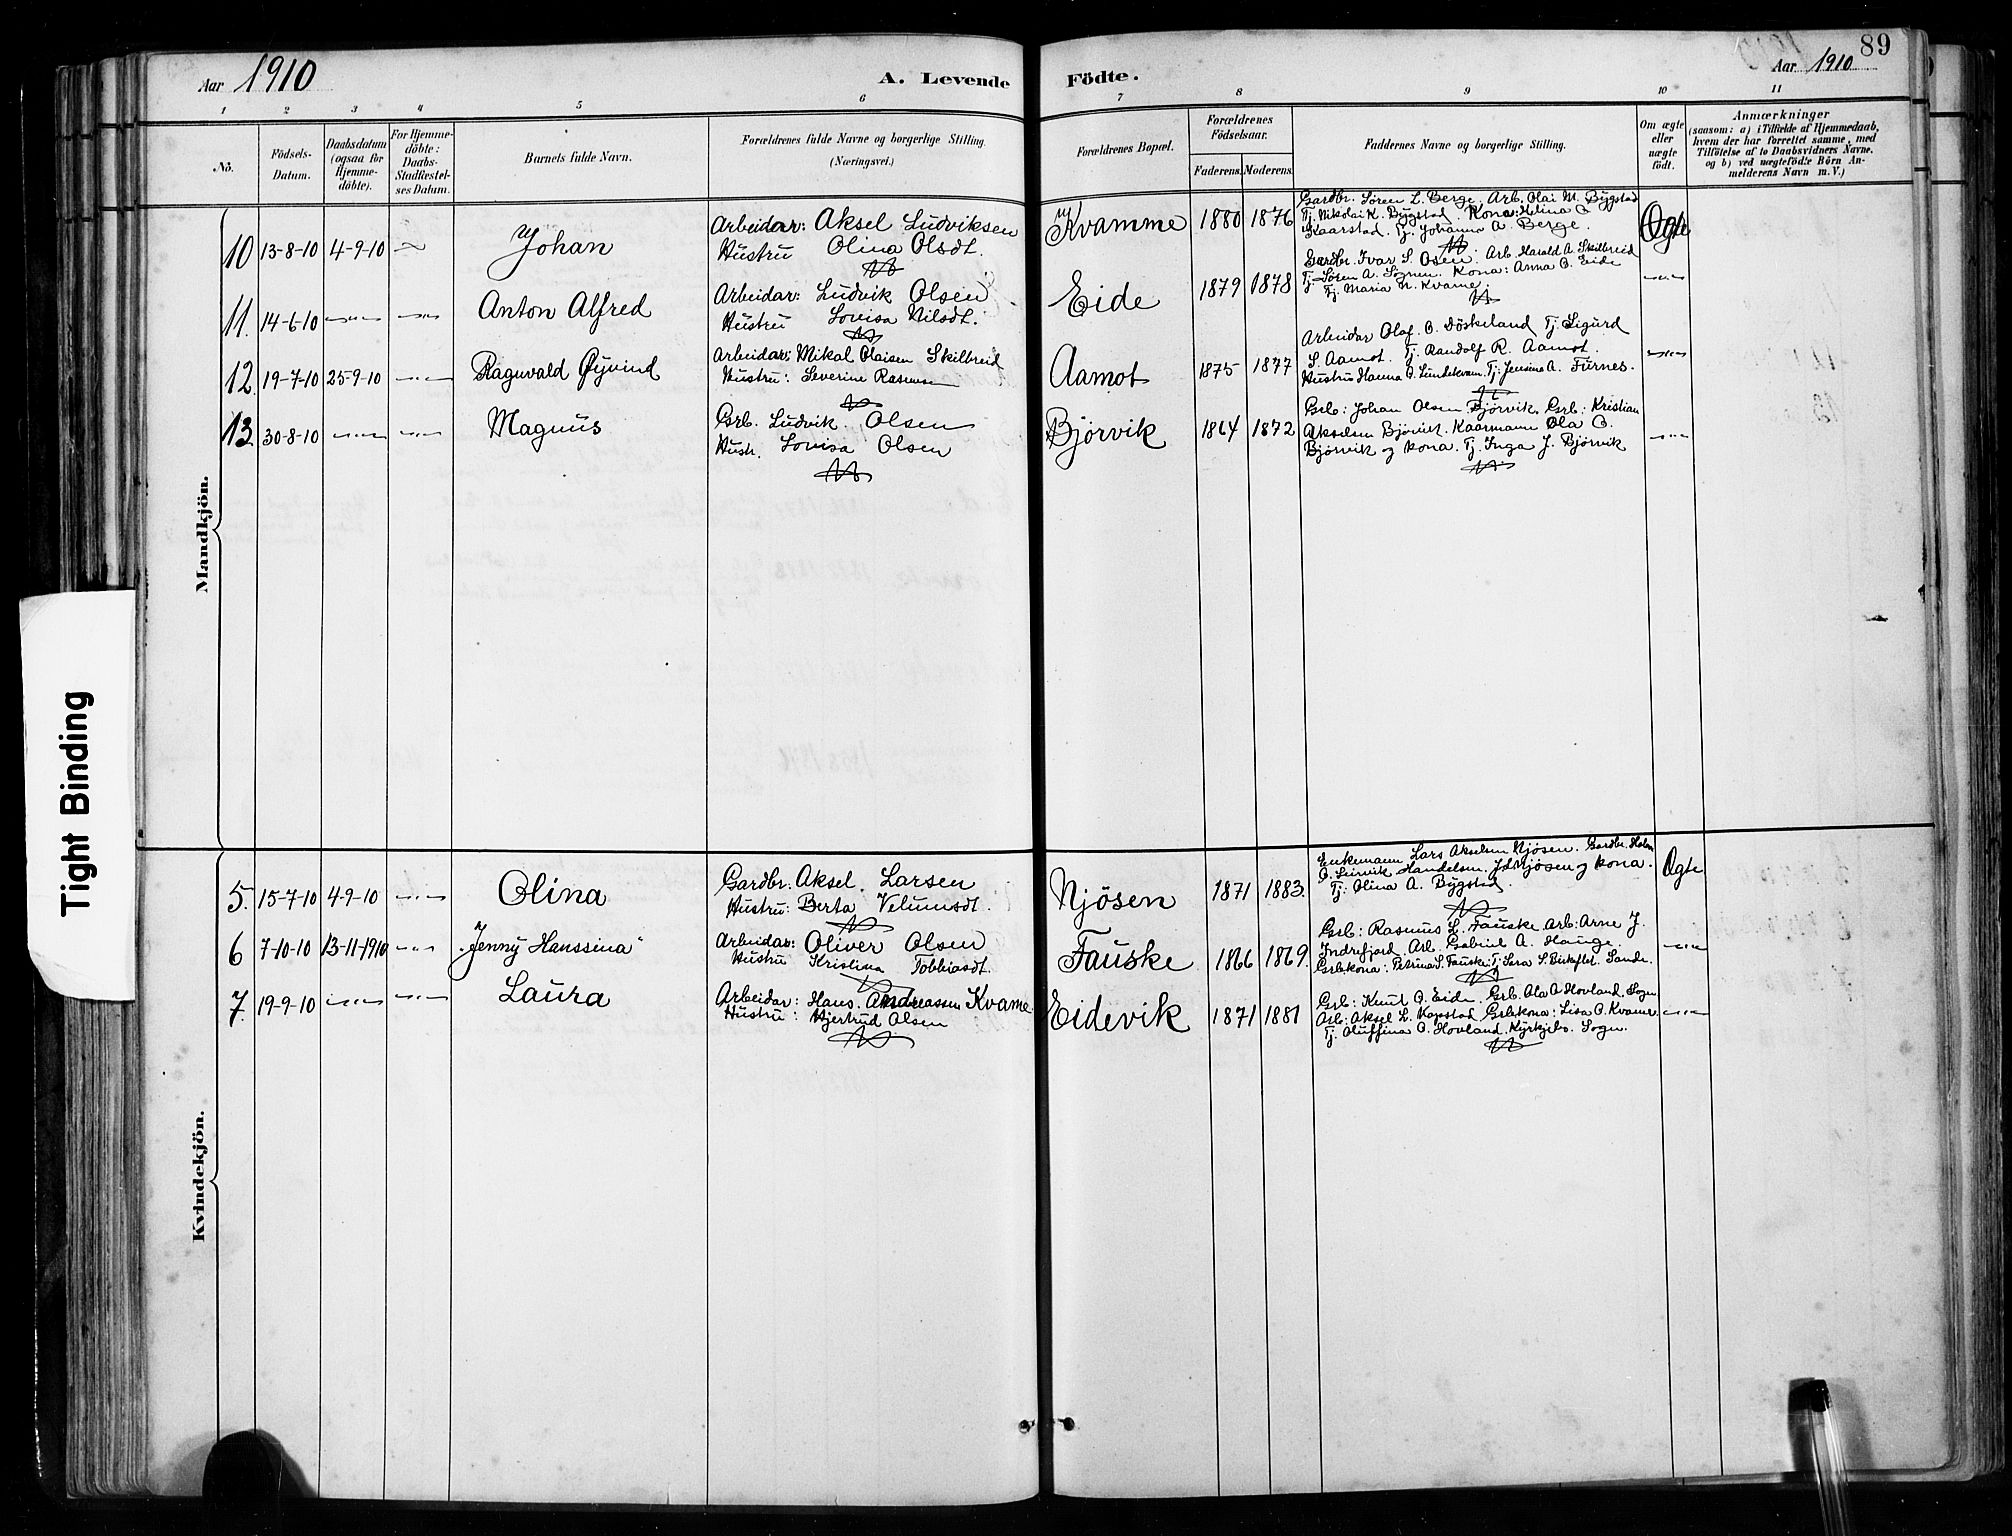 Aar 1910
A. Levende Födte.
Aar 1910
89
1 2 3 4 5 6 7 8 9 10 11
No.
Födsels-Datum.
Daabsdatum (ogsaa for Hjemme-döbte).
For Hjemme-döbte: Daabs-Stadfæstel-ses Datum.
Barnets fulde Navn.
Forældrenes fulde Navne og borgerlige Stilling. (Næringsvei.)
Forældrenes Bopæl.
Forældrenes Födselsaar.
Faderens. Moderens.
Faddernes Navne og borgerlige Stilling.
Om ægte eller uægte födt.
Anmærkninger
(saasom: a) i Tilfælde af Hjemmedaab, hvem der har forrettet samme, med Tilföielse af to Daabsvidners Navne, og b) ved uægtefödte Börn An-melderens Navn m. V.)
Mandkjön.
10 13-8-10 4-9-10 Johan
Arbeidar: Aksel Ludviksen
Hustru Olina Olsdt.
Kvamme 1880 1876
Gardbr. Søren L. Berge. Arb. Olai M. Bygstad
Tj. Nikolai K. Bygstad. Kona: Helina O
Kaarstad. Tj. Johanna A. Berge.
Ogte
11. 14-6-10 —"— —"— Anton Alfred
Arbeidar: Ludvik Olsen
Hustru Lovisa Nilsdt.
Eide 1879 1878
Gardbr. Ivar S. Osen. Arb. Harald A. Skilbreid
Tj. Søren A. Sognen. Kona: Anna O. Eide
Tj. Maria N. Kvame.
—"—
12. 19-7-10 25-9-10 —"— Ragnvald Øyvind
Arbeidar: Mikal Olaisen Skilbreid
Hustru: Severine Rasmusen
Aamot 1875 1877
Arbeidar Olaf O. Döskeland Tj. Sigurd
S. Aamot. Tj. Randolf R. Aamot.
Hustru Hanna O. Lundekvam. Tj. Jensina A. Furnes.
—"—
13. 30-8-10 —"— —"— Magnus
Grb. Ludvik Olsen
Hustr. Lovisa Olsen
Bjørvik 1864 1872
Grb: Johan Olsen Bjørvik. Grb: Kristian
Akselsen Bjørvik. Kaarmann Ola O.
Bjørvik og kona. Tj. Inga J. Bjørvik
—"—
Kvindekjön.
5. 15-7-10 4-9-10 —"— Olina
Gardbr: Aksel Larsen
Hustru: Berta Velumsdt.
Njøsen 1871 1883.
Enkemann Lars Akselsen Njøsen. Gardbr. Halvor
O. Leirvik Handelsm. J.L. Njøsen og kona.
Tj: Olina A. Bygstad.
Ogte
6 7-10-10 13-11-1910 —"— "Jenny Hanssina"
Arbeidar: Oliver Olsen
Hustru Kristina Tobbiasdt.
Fauske 1866 1869.
Grb: Rasmus L. Fauske Arb: Arne J.
Indrefjord. Arb. Gabriel A. Hauge.
Grbkona: Petrina S. Fauske. Tj. Sara S. Sande.
—"—
7. 19-9-10 —"— —"— Laura
Arbeidar: Hans. Andreassen Kvame.
Hustru: Hjertrud Olsen
Eidevik 1871 1881
Grb: Knut O. Eide. Grb. Ola O Hovland. Sogn
Arb: Aksel L. Grbkona: Lisa O. Kvame.
Tj. Oluffina O. Hovland. Kyrkjebø. Sogn.
—"—
Tight Binding